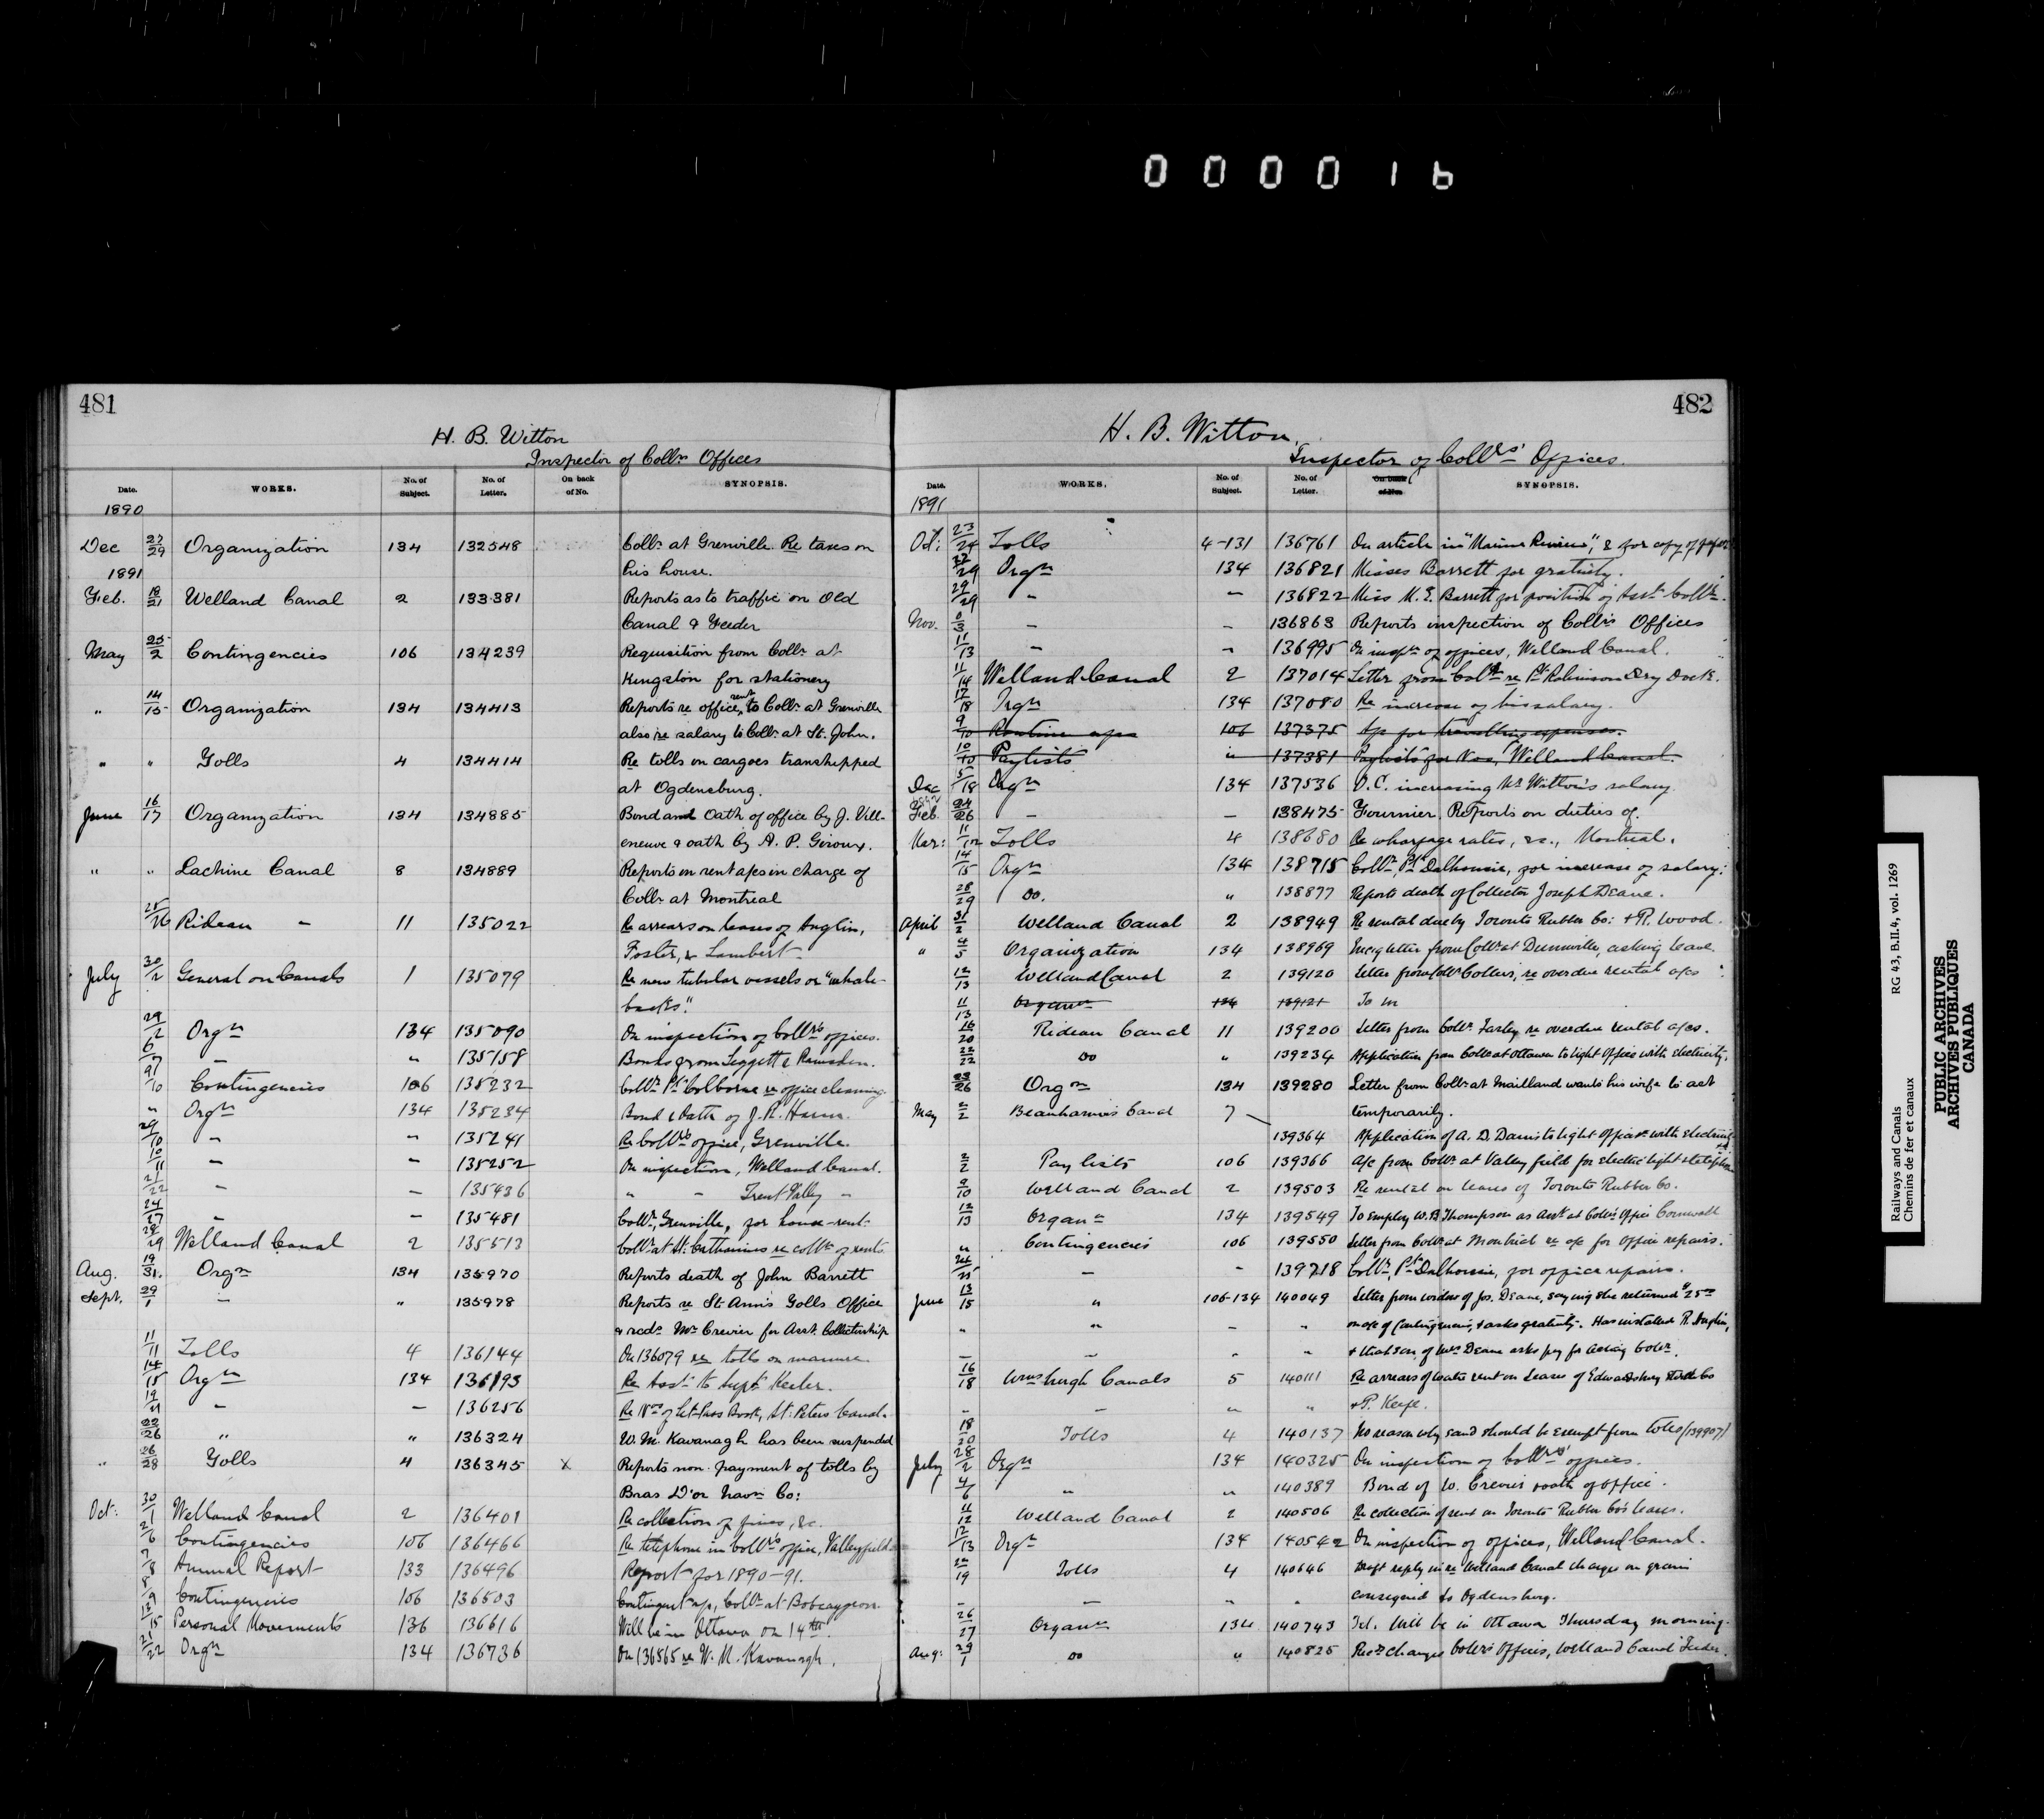 000016
481
H. B. Witton
Inspector of Collrs Offices
Date. WORKS. No. of Subject. No. of Letter. On back of No. SYNOPSIS.
1890
Dec 27/29 Organization 134 132548 Collr at Grenville. Re taxes on
1891 his house.
Feb. 18/21 Welland Canal 2 133381 Reports as to traffic on Old
Canal & Feeder
May 25/2 Contingencies 106 134239 Requisition from Collr at
Kingston for stationery
" 14/15 Organization 134 134413 Reports re office rent to Collr at Grenville
also re salary to Collr at St. John.
" " Tolls 4 134414 Re tolls on cargoes transhipped
at Ogdensburg.
June 16/17 Organization 134 134885 Bond and Oath of office by J. Vill-
eneuve & oath by A. P. Giroux.
" " Lachine Canal 8 134889 Reports on rent a/cs in charge of
Collr at Montreal
25/26 Rideau - 11 135022 Re arrears on leases of Anglin,
Foster, & Lambert
July 30/2 General on Canals 1 135079 Re new tubular vessels or "whale-
backs".
29/2 Orgn 134 135090 On inspection of Collrs offices.
6/7 - " 135158 Bonds from Leggett & Ramsden.
9/10 Contingencies 106 135232 Collr Pt Colborne re office cleaning.
" Orgn 134 135234 Bond & Oath of J. R.
29/10 " " 135241 Re Collrs office, Grenville.
10/11 - - 135252 On inspection, Welland Canal.
21/22 - - 135436 " - Trent Valley -
24/27 - - 135481 Collr, Grenville, for house-rent
28/29 Welland Canal 2 135513 Collr at St. Catharines re colltn of rents
Aug. 19/31. Orgn 134 135970 Reports death of John Barrett
Sept. 29/1 - " 135978 Reports re St. Ann's Tolls Office
& recds Mr Crevier for Asst. Collectorship
11/11 Tolls 4 136144 On 136079 re tolls on manure.
14/15 Orgn 134 136193 Re Asst to Supt Keeler.
19/21 - - 136256 Re of Let-Pass Book, St. Peters Canal.
22/26 " " 136324 W. M. Kavanagh has been suspended
" 26/28 Tolls 4 136345 x Reports non-payment of tolls by
Bras D'or Navn Co:
Oct: 30/1 Welland Canal 2 136401 Re collection of fines, &c.
2/6 Contingencies 106 136466 Re telephone in Collrs office, Valleyfield
7/8 Annual Report 133 136496 Report for 1890-91.
8/9 Contingencies 106 136503 Contingent a/c, Collr at Bobcaygeon.
13/15 Personal Movements 136 136616 Will be in Ottawa on 14th.
21/22 Orgn 134 136736 On 136565 re W. M. Kavanagh.
482
H. B. Witton,
Inspector of Collrs' Offices.
Date. WORKS. No. of Subject. No. of Letter. On back of No. SYNOPSIS.
1891
Oct: 23/24 Tolls 4-131 136761 On article in "Marine Review", & for copy of paper
27/29 Orgn 134 136821 Misses Barrett for gratuity.
29/29 - - 136822 Miss M. E. Barrett for position of Asst Collr.
Nov. 0/3 - - 136863 Reports inspection of Collrs Offices
11/13 - - 136995 On inspn of offices, Welland Canal.
11/14 Welland Canal 2 137014 Letter from Collr re Pt Robinson Dry Dock.
17/18 Orgn 134 137080 Re increase of his salary.
9/10 Routine a/cs 106 137375 A/c for travelling expenses.
10/10 Paylists " 137381 Paylists for Nov, Welland Canal.
Dec 5/18 Orgn 134 137536 O.C. increasing Mr Witton's salary.
Feb. 24/26 - - 138475 Fournier. Reports on duties of.
Mar: 11/12 Tolls 4 138680 Re wharfage rates, &c., Montreal.
14/15 Orgn 134 138715 Collr, Pt Dalhousie, for increase of salary.
28/29 Do. " 138877 Reports death of Collector Joseph Deane.
April 31/2 Welland Canal 2 138949 Re rental due by Toronto Rubber Co: & R. Wood.
" 4/5 Organization 134 138969 letter from Collr at Dunnville, asking leave
12/13 Welland Canal 2 139120 Letter from Collr Collens, re overdue rental a/cs
11/13 Organn 134 139121 To m
16/20 Rideau Canal 11 139200 Letter from Collr Farley re overdue rental a/cs.
22/22 Do " 139234 Application from Collr at Ottawa to light Offices with electricity.
23/26 Orgn 134 139280 Letter from Collr at Maitland wants his wife to act
May 2/2 Beauharnois Canal 7 temporarily.
139364 Application of A. D. Danis to light Offices with Electricity
2/2 Pay lists 106 139366 A/c from Collr at Valleyfield for electric light & telephone
9/10 Welland Canal 2 139503 Re rental on leases of Toronto Rubber Co.
12/13 Organn 134 139549 To employ W. B. Thompson as Asst at Collr's Office Cornwall
" Contingencies 106 139550 Letter from Collr at Montreal re a/c for office repairs.
24/25 - - 139718 Collr, Pt Dalhousie, for office repairs.
June 13/15 " 106-134 140049 Letter from widow of Jos. Deane, saying she returned $25.00
" " - " on a/c of Contingencies, & asks gratuity. Has installed R. Anglin,
- - " " & that son of Mrs Deane asks pay for acting Collr.
16/18 Wmsburgh Canals 5 140111 Re arrears of water rent on Leases of Edwardsburg Starch Co
- - " " & P. Keefe.
18/20 Tolls 4 140137 No reason why sand should be exempt from tolls (139907)
July 28/2 Orgn 134 140325 On inspection of Collrs' offices.
4/6 " " 140389 Bond of W. Crevier & oath of office.
11/12 Welland Canal 2 140506 Re collection of rent on Toronto Rubber Co's leases.
12/13 Orgn 134 140542 On inspection of offices, Welland Canal.
12/19 Tolls 4 140646 Draft reply in re Welland Canal charges on grain
- - " " consigned to Ogdensburg.
26/27 Organn 134 140743 Tel. Will be in Ottawa Thursday morning.
Aug: 29/1 Do " 140825 Recds changes Collrs Offices, Welland Canal Feeder.
Railways and Canals RG 43, B.II.4, vol. 1269
Chemins de fer et canaux
PUBLIC ARCHIVES
ARCHIVES PUBLIQUES
CANADA